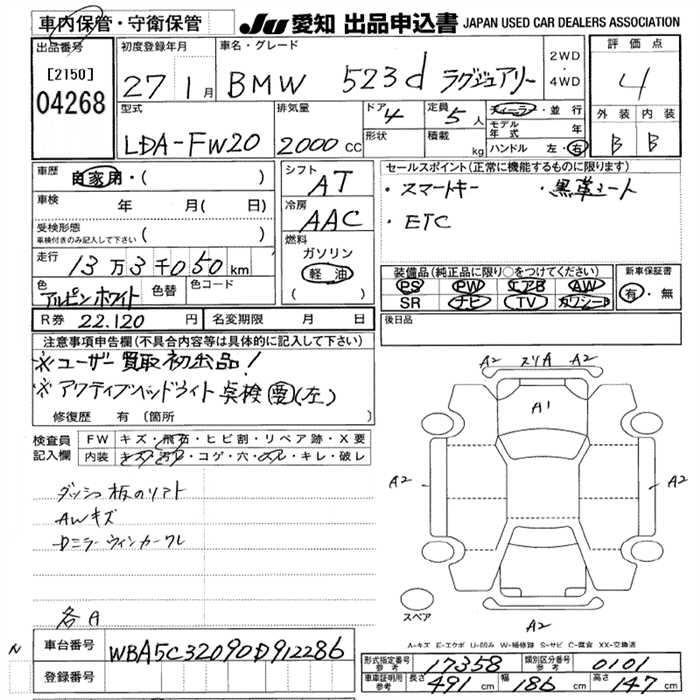 車内保管・守衛保管 JU 愛知 出品申込書 JAPAN USED CAR DEALERS ASSOCIATION
出品番号 初度登録年月 車名・グレード 2WD・4WD 評価点
[2150] 04268 27 1月 BMW 523d ラグジュアリー 4
型式 排気量 ドア 4 定員 5人 ディーラー・並行 外装 内装
LDA-FW20 2000CC 形状 積載 kg モデル年式 年 B B
ハンドル 左・右
車歴 自家用・( ) シフト AT セールスポイント(正常に機能するものに限ります)
車検 年 月( 日) 冷房 AAC ・スマートキー ・黒革シート
受検形態 ( ) ・ETC
車検付きのみ記入して下さい
走行 13万3千050km 燃料 ガソリン 軽油 ( )
装備品(純正品に限り○をつけてください) 新車保証書
PS PW エアB AW 有・無
SR ナビ TV カワシート
色 アルピンホワイト 色替 色コード
R券 22.120円 名変期限 月 日 後日品
注意事項申告欄(不具合内容等は具体的に記入して下さい)
※ユーザー買取初出品!
※アクティブヘッドライト点検要(左)
修復歴 有〔箇所
検査員記入欄 FW キズ・飛石・ヒビ割・リペア跡・X要
内装 キズ・汚レ・コゲ・穴・スレ・キレ・破レ
ダッシュ板のリフト
AWキズ
Dミラーウィンカーワレ
各A
A2 スリA A2
A1
A2 A2
A2
スペア
A-キズ E-エクボ U-凹み W-補修跡 S-サビ C-腐食 XX-交換済
N 車台番号 WBA5C32090D912286
登録番号
形式指定番号 参考 17358 類別区分番号 参考 0101
車庫証明用 参考 長さ 491cm 幅 186cm 高さ 147cm